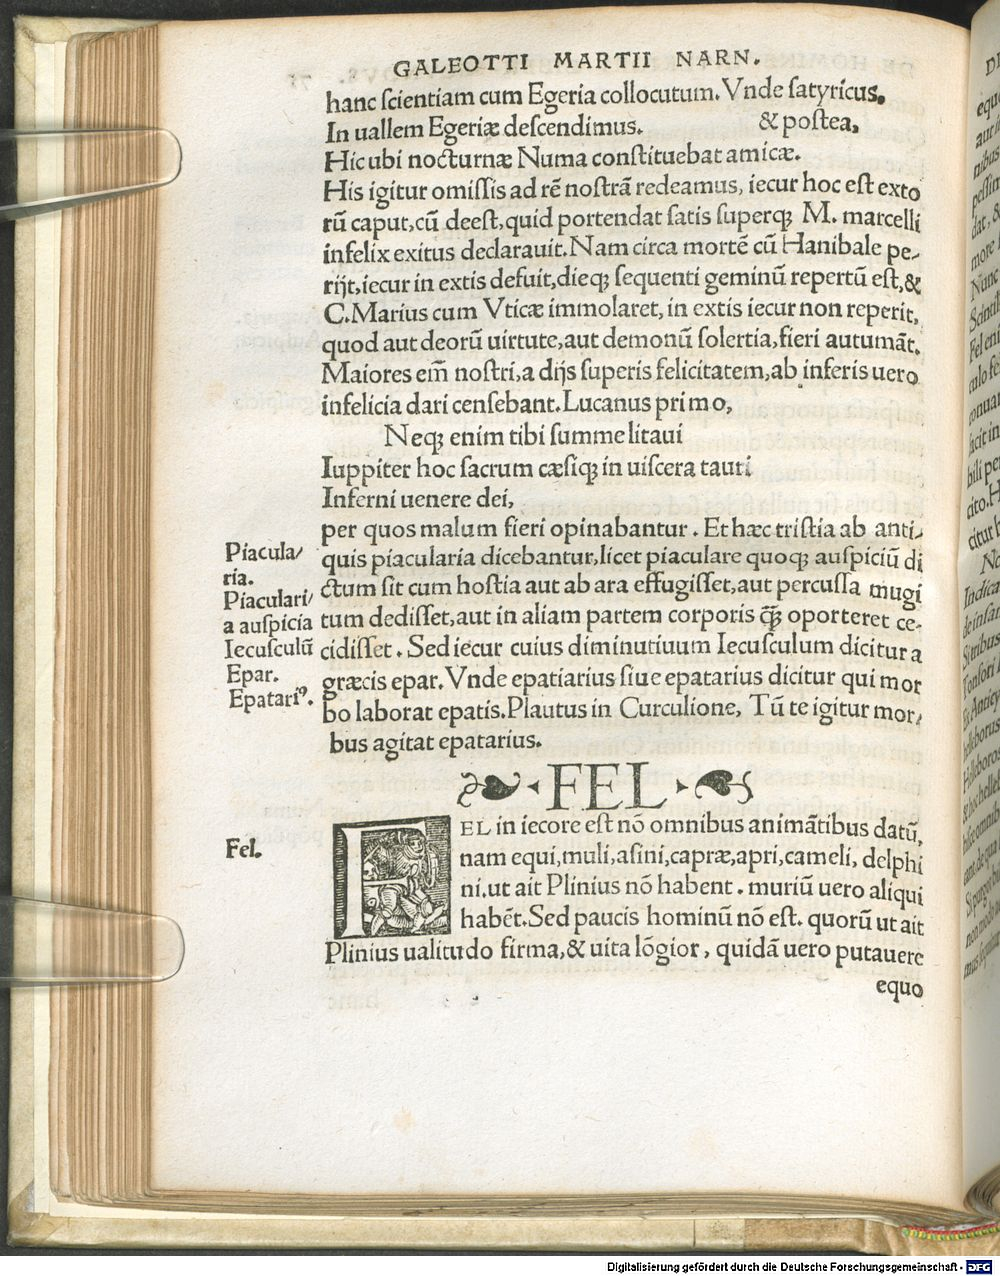 GALEOTTI MARTII NARN.
hanc ſcientiam cum Egeria collocutum. Vnde ſatyricus.
In uallem Egeriæ deſcendimus. & poſtea,
Hic ubi nocturnæ Numa conſtituebat amicæ.
His igitur omiſſis ad rē noſtrā redeamus, iecur hoc eſt exto
rū caput, cū deeſt, quid portendat ſatis ſuperqꝫ M. marcelli
infelix exitus declarauit. Nam circa mortē cū Hanibale pe⸗
rijt, iecur in extis defuit, dieqꝫ ſequenti geminū repertū eſt, &
C. Marius cum Vticæ immolaret, in extis iecur non reperit,
quod aut deorū uirtute, aut demonū ſolertia, fieri autumāt.
Maiores em̄ noſtri, a dijs ſuperis felicitatem, ab inferis uero
infelicia dari cenſebant. Lucanus primo,
Neqꝫ enim tibi ſumme litaui
Iuppiter hoc ſacrum cæſiqꝫ in uiſcera tauri
Inferni uenere dei,
per quos malum fieri opinabantur. Et hæc triſtia ab anti⸗
Piacula/
ria.
quis piacularia dicebantur, licet piaculare quoqꝫ auſpiciū di
Piaculari/
a auſpicia
ctum ſit cum hoſtia aut ab ara effugiſſet, aut percuſſa mugi
tum dediſſet, aut in aliam partem corporis q̄ꝫ oporteret ce⸗
Iecuſculū
cidiſſet. Sed iecur cuius diminutiuum Iecuſculum dicitur a
Epar.
græcis epar. Vnde epatiarius ſiue epatarius dicitur qui mor
Epatariꝰ.
bo laborat epatis. Plautus in Curculione, Tū te igitur mor⸗
bus agitat epatarius.
FEL
Fel.
FEL in iecore eſt nō omnibus animātibus datū,
nam equi, muli, aſini, capræ, apri, cameli, delphi
ni. ut ait Plinius nō habent. muriū uero aliqui
habēt. Sed paucis hominū nō eſt. quorū ut ait
Plinius ualitudo firma, & uita lōgior, quidā uero putauere
equo
Digitalisierung gefördert durch die Deutsche Forschungsgemeinschaft - DFG